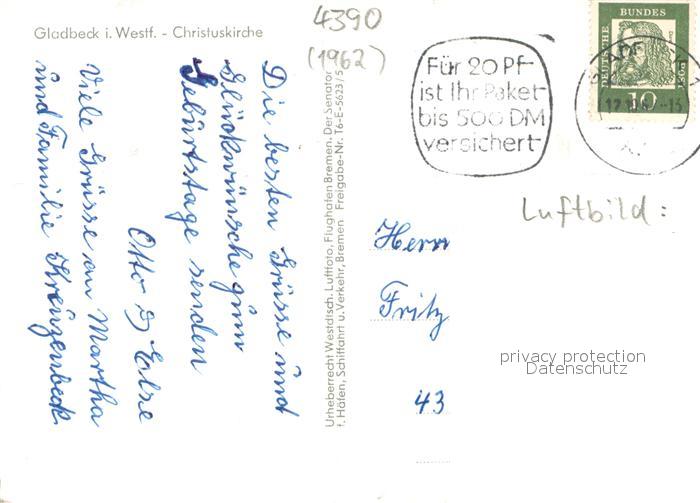 Gladbeck i. Westf. - Christuskirche
4390
(1962)
Für 20 Pf
ist Ihr Paket
bis 500 DM
versichert
DEUTSCHE BUNDESPOST
10
Luftbild:
Die besten Grüsse und
Glückwünsche zum
Geburtstage senden
Otto & Else
Viele Grüsse an Martha
und Familie Kreuzenbeck
Urheberrecht Westdtsch. Luftfoto, Flughafen Bremen. Der Senator
f. Häfen, Schiffahrt u. Verkehr, Bremen Freigabe-Nr. T6-E-5623/5
Herrn
Fritz
43
privacy protection
Datenschutz